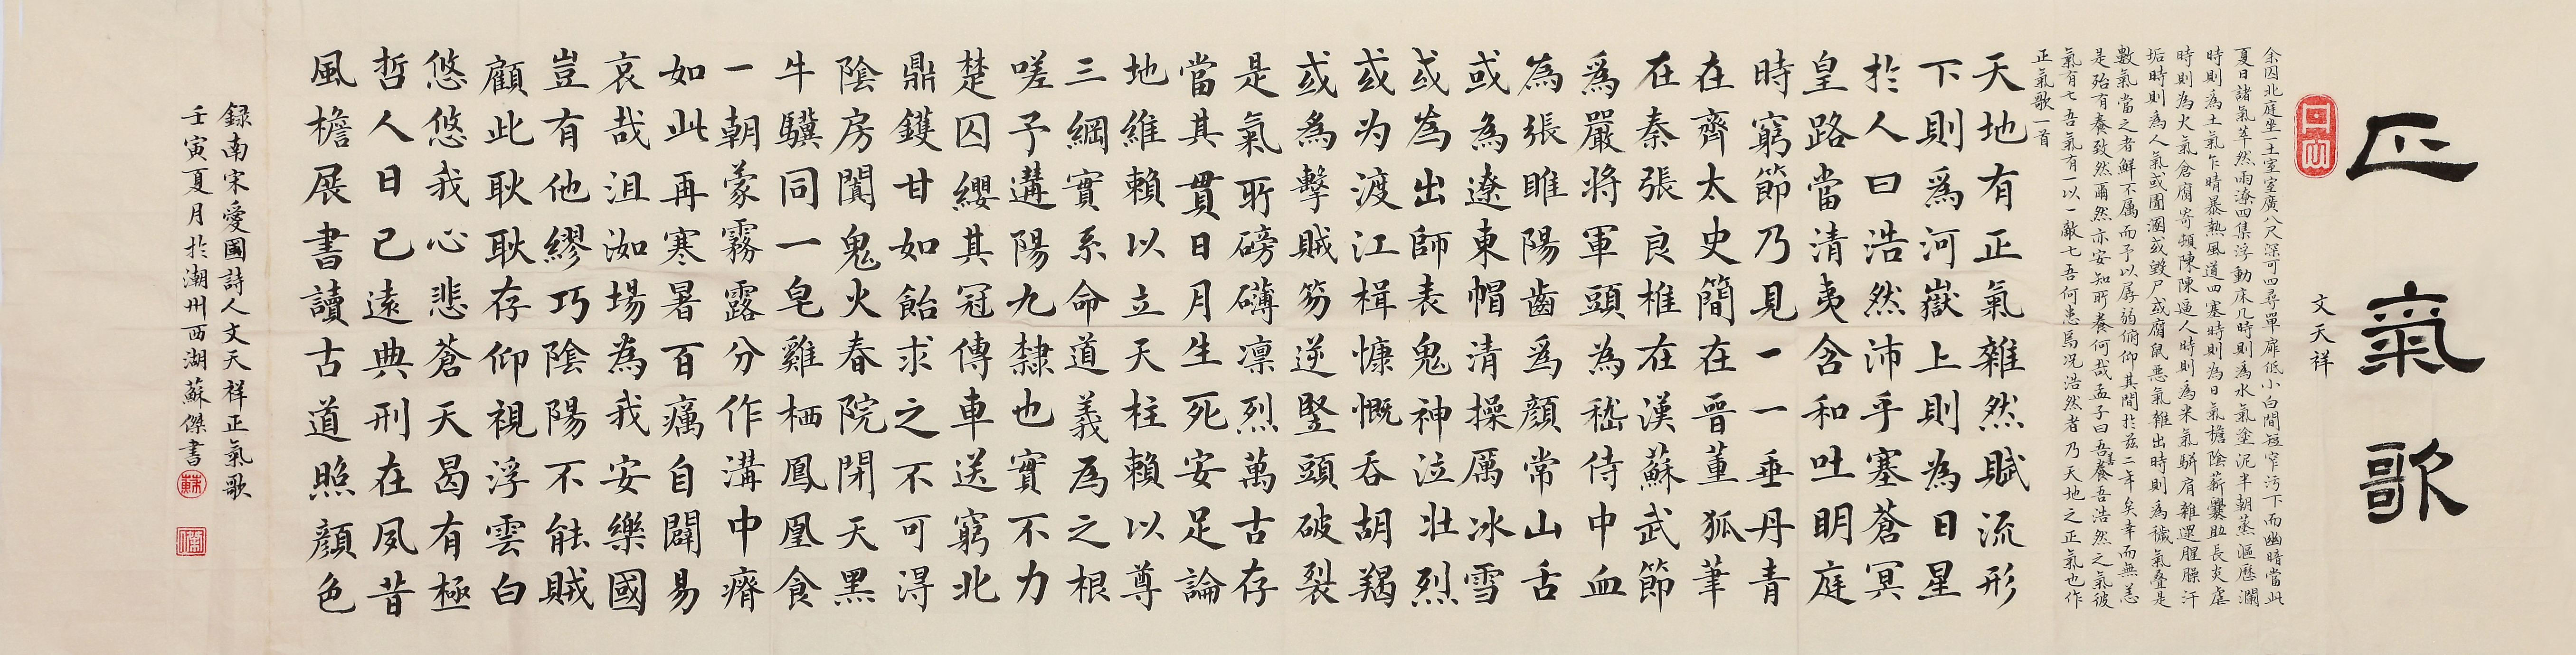 正氣歌
文天祥
余囚北庭坐一土室室廣八尺深可四尋單扉低小白間短窄污下而幽暗當此
夏日諸氣萃然雨潦四集浮動床几時則為水氣塗泥半朝蒸漚歷瀾
時則為土氣乍晴暴熱風道四塞時則為日氣檐陰薪爨助長炎虐
時則為火氣倉腐寄頓陳陳逼人時則為米氣駢肩雜遝腥臊汗
垢時則為人氣或圊溷或毀尸或腐鼠惡氣雜出時則為穢氣疊是
數氣當之者鮮不属而予以孱弱俯仰其間於兹二年矣幸而無恙
是殆有養致然爾然亦安知所養何哉孟子曰吾善養吾浩然之氣彼
氣有七吾氣有一以一敵七吾何患焉况浩然者乃天地之正氣也作
正氣歌一首
天地有正氣雜然賦流形
下則為河嶽上則為日星
於人曰浩然沛乎塞蒼冥
皇路當清夷含和吐明庭
時窮節乃見一一垂丹青
在齊太史簡在晉董狐筆
在秦張良椎在漢蘇武節
為嚴將軍頭為嵇侍中血
為張睢陽齒為顏常山舌
或為遼東帽清操厲冰雪
或為出師表鬼神泣壯烈
或为渡江楫慷慨吞胡羯
或為擊賊笏逆豎頭破裂
是氣所磅礴凛烈萬古存
當其貫日月生死安足論
地維賴以立天柱賴以尊
三綱實系命道義為之根
嗟予遘陽九隸也實不力
楚囚纓其冠傳車送窮北
鼎鑊甘如飴求之不可得
陰房闃鬼火春院閉天黑
牛驥同一皂雞栖鳳凰食
一朝蒙霧露分作溝中瘠
如此再寒暑百癘自闢易
哀哉沮洳場為我安樂國
豈有他繆巧陰陽不能賊
顧此耿耿存仰視浮雲白
悠悠我心悲蒼天曷有極
哲人日已遠典刑在夙昔
風檐展書讀古道照顏色
録南宋愛國詩人文天祥正氣歌
壬寅夏月於潮州西湖蘇傑書